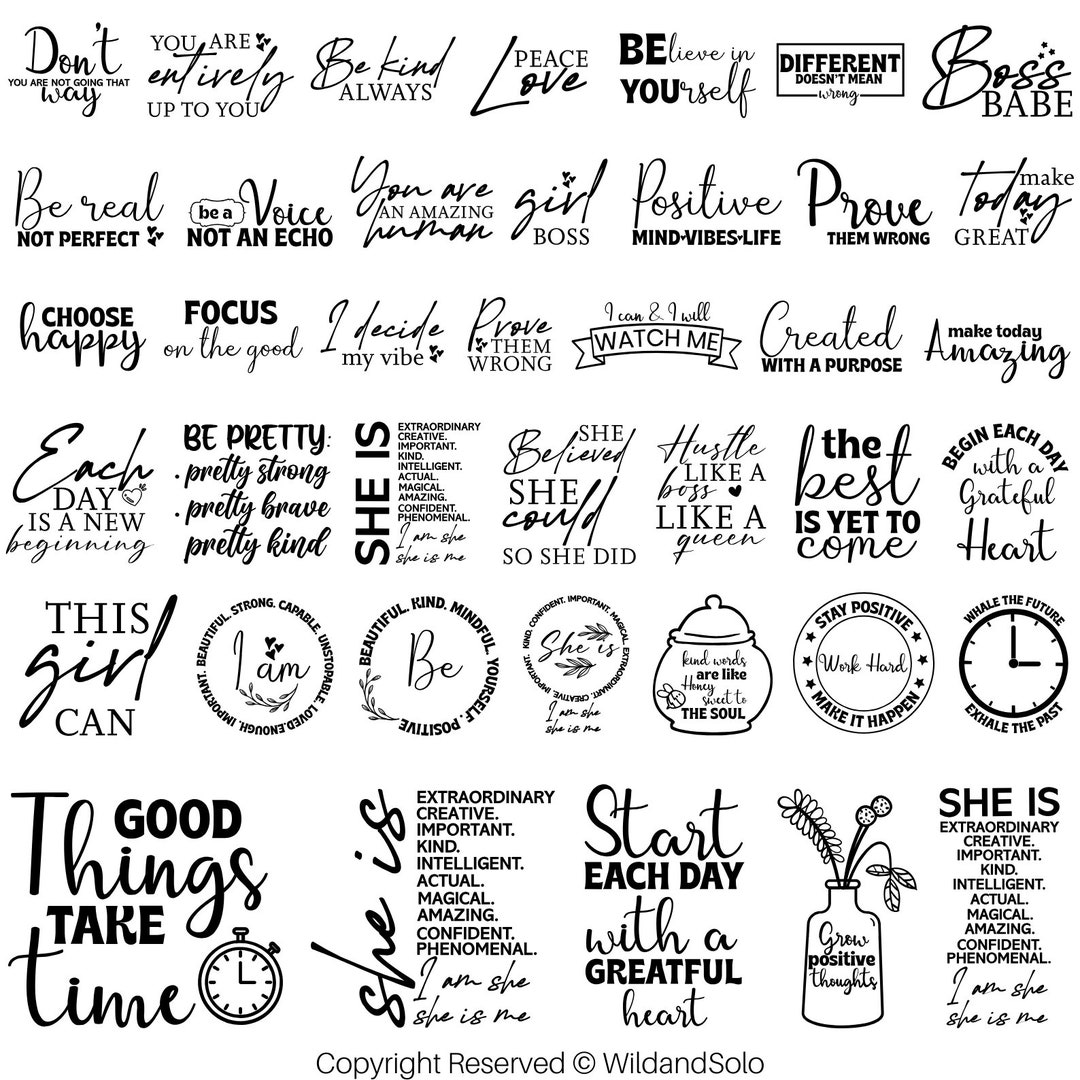 Don't
YOU ARE NOT GOING THAT
way
YOU ARE
entively
UP TO YOU
Be kind
ALWAYS
PEACE
Love
BElieve in
YOUrself
DIFFERENT
DOESN'T MEAN
wrong
Boss
BABE
Be real
NOT PERFECT
be a Voice
NOT AN ECHO
You are
AN AMAZING
human
girl
BOSS
Positive
MIND VIBES LIFE
Prove
THEM WRONG
make
Today
GREAT
CHOOSE
happy
FOCUS
on the good
I decide
my vibe
Prove
THEM
WRONG
I can & I will
WATCH ME
Created
WITH A PURPOSE
make today
Amazing
Each
DAY
IS A NEW
beginning
BE PRETTY:
. pretty strong
. pretty brave
pretty kind
SHE IS
EXTRAORDINARY
CREATIVE.
IMPORTANT.
KIND.
INTELLIGENT.
ACTUAL.
MAGICAL.
AMAZING.
CONFIDENT.
PHENOMENAL.
I am she
she is me
SHE
Believed
SHE
could
SO SHE DID
Hustle
LIKE A
boss
LIKE A
queen
the
best
IS YET TO
come
BEGIN EACH DAY
with a
Grateful
Heart
THIS
girl
CAN
BEAUTIFUL. STRONG. CAPABLE. UNSTOPABLE. LOVED.ENOUGH. IMPORTANT.
I am
BEAUTIFUL. KIND. MINDFUL. YOURSELF. POSITIVE
Be
KIND. CONFIDENT. IMPORTANT. MAGICAL. EXTRAORDINART. CREATIVE. IMPORTANT.
She is
I am she
she is me
kind words
are like
Honey
sweet to
THE SOUL
STAY POSITIVE
Work Hard
MAKE IT HAPPEN
WHALE THE FUTURE
EXHALE THE PAST
GOOD
Things
TAKE
time
she is
EXTRAORDINARY
CREATIVE.
IMPORTANT.
KIND.
INTELLIGENT.
ACTUAL.
MAGICAL.
AMAZING.
CONFIDENT.
PHENOMENAL.
I am she
she is me
Start
EACH DAY
with a
GREATFUL
heart
Grow
positive
thoughts
SHE IS
EXTRAORDINARY
CREATIVE.
IMPORTANT.
KIND.
INTELLIGENT.
ACTUAL.
MAGICAL.
AMAZING.
CONFIDENT.
PHENOMENAL.
I am she
she is me
Copyright Reserved © WildandSolo